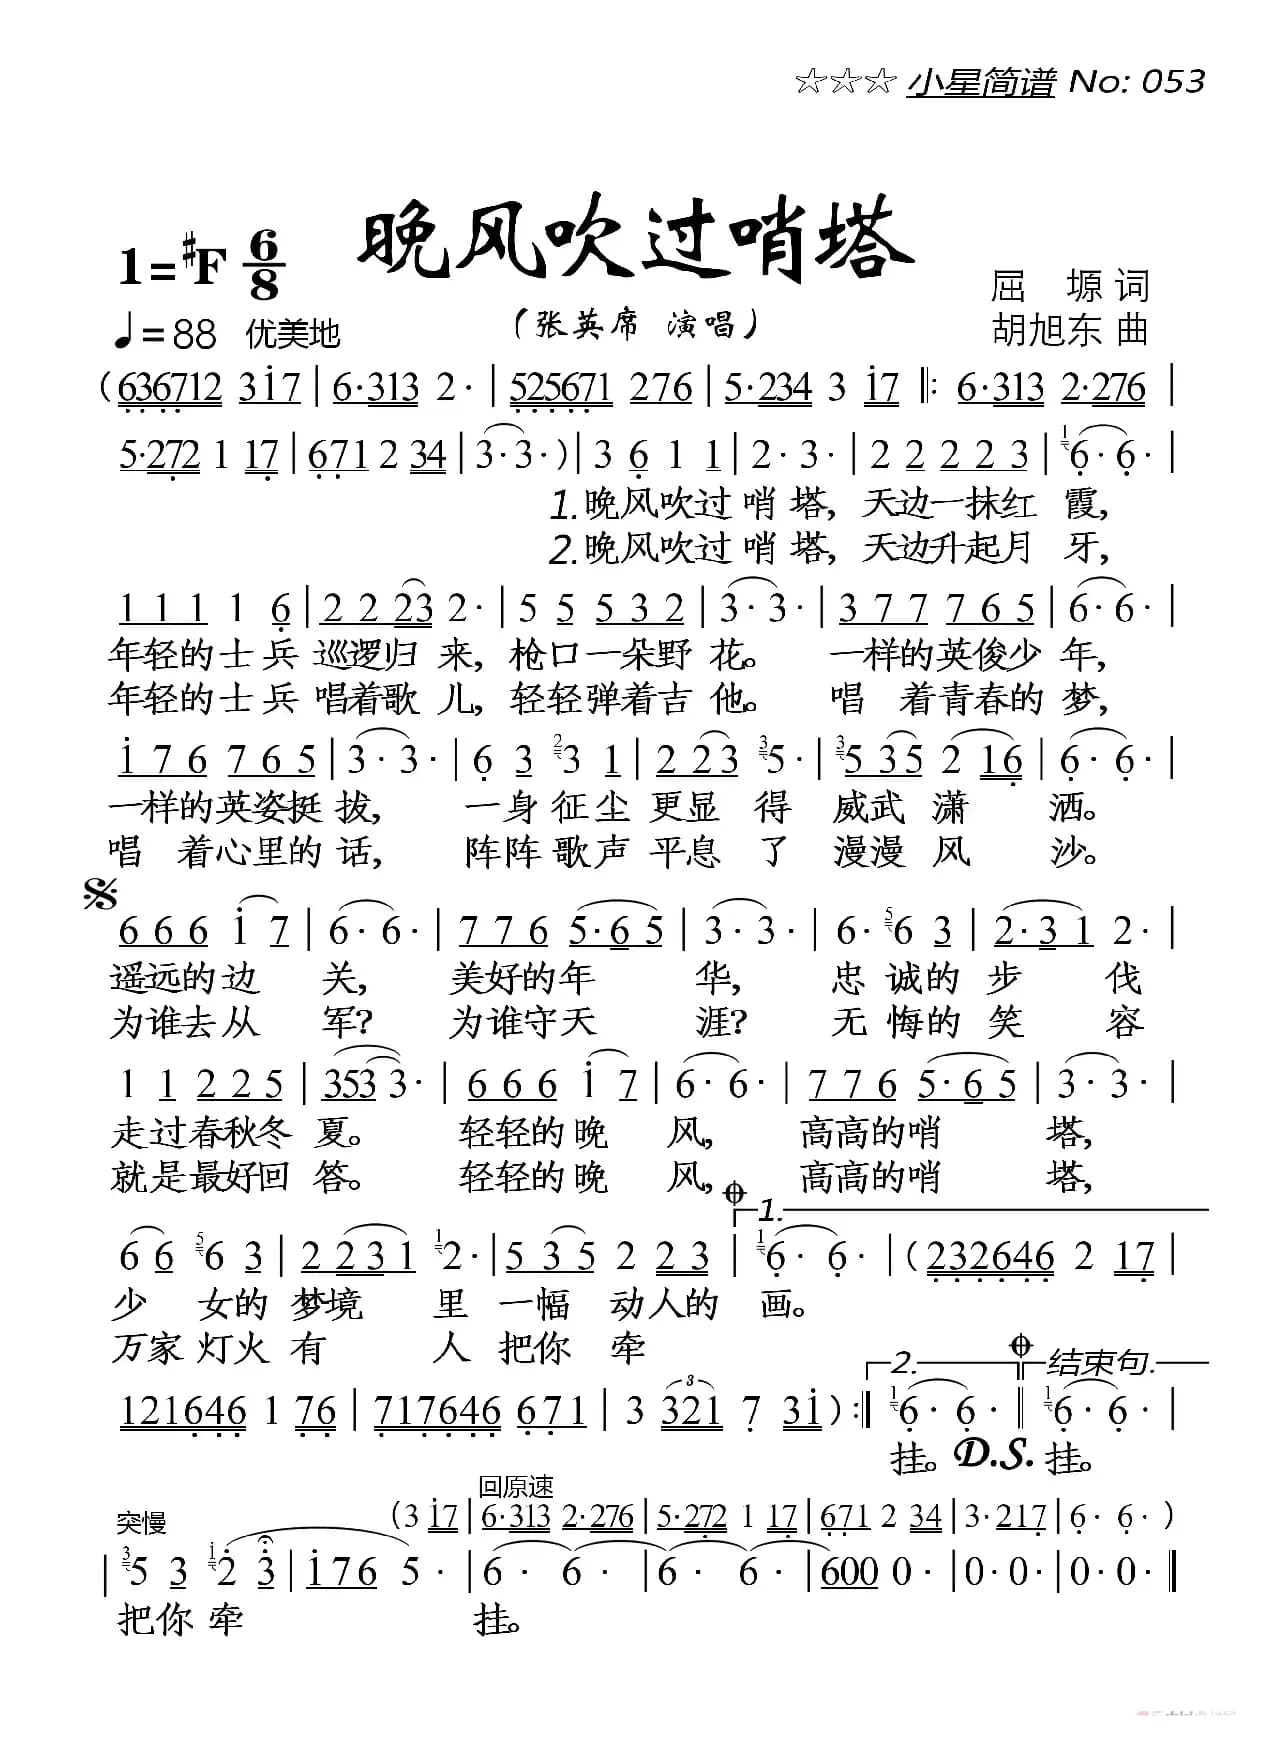 ☆☆☆ 小星简谱 No: 053
晚风吹过哨塔
1=#F 6/8
屈 塬 词
(张英席 演唱)
胡旭东 曲
♩=88 优美地
(636712 3i7 | 6·313 2· | 525671 276 | 5·234 3 i7 ‖: 6·313 2·276 |
5·272 1 17 | 671 2 34 | 3·3· ) | 3 6 1 1 | 2· 3· | 2 2 2 2 3 | 1 6· 6· |
1.晚风吹过哨塔, 天边一抹红霞,
2.晚风吹过哨塔, 天边升起月牙,
1 1 1 1 6 | 2 2 23 2· | 5 5 5 3 2 | 3· 3· | 3 7 7 7 6 5 | 6· 6· |
年轻的士兵 巡逻归来, 枪口一朵野花。 一样的英俊少年,
年轻的士兵 唱着歌儿, 轻轻弹着吉他。 唱着青春的梦,
i 7 6 7 6 5 | 3· 3· | 6 3 2 3 1 | 2 2 3 3 5· | 3 5 35 2 16 | 6· 6· |
一样的英姿挺拔, 一身征尘更显得 威武潇洒。
唱着心里的话, 阵阵歌声平息了 漫漫风沙。
6 6 6 i 7 | 6· 6· | 7 7 6 5·6 5 | 3· 3· | 6· 5 6 3 | 2·3 1 2· |
遥远的边关, 美好的年华, 忠诚的步伐
为谁去从军? 为谁守天涯? 无悔的笑容
1 1 2 2 5 | 353 3· | 6 6 6 i 7 | 6· 6· | 7 7 6 5·6 5 | 3· 3· |
走过春秋冬夏。 轻轻的晚风, 高高的哨塔,
就是最好回答。 轻轻的晚风, 高高的哨塔,
1.
6 6 5 6 3 | 2 2 3 1 1 2· | 5 3 5 2 2 3 | 1 6· 6· | (232646 2 17 |
少女的梦境里 一幅动人的画。
万家灯火有人 把你牵
2. 结束句.
121646 1 76 | 717646 671 | 3 3 321 7 3i ) :‖ 1 6· 6· ‖ 1 6· 6· |
挂。 D.S. 挂。
回原速
突慢 (3 i7 | 6·313 2·276 | 5·272 1 17 | 671 2 34 | 3·217 | 6· 6· )
| 3 5 3 i 2 3 | i 7 6 5· | 6· 6· | 6· 6· | 600 0· | 0· 0· | 0· 0· ‖
把你牵 挂。